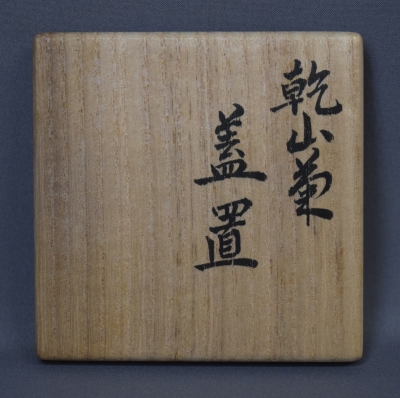 乾山菊
蓋置